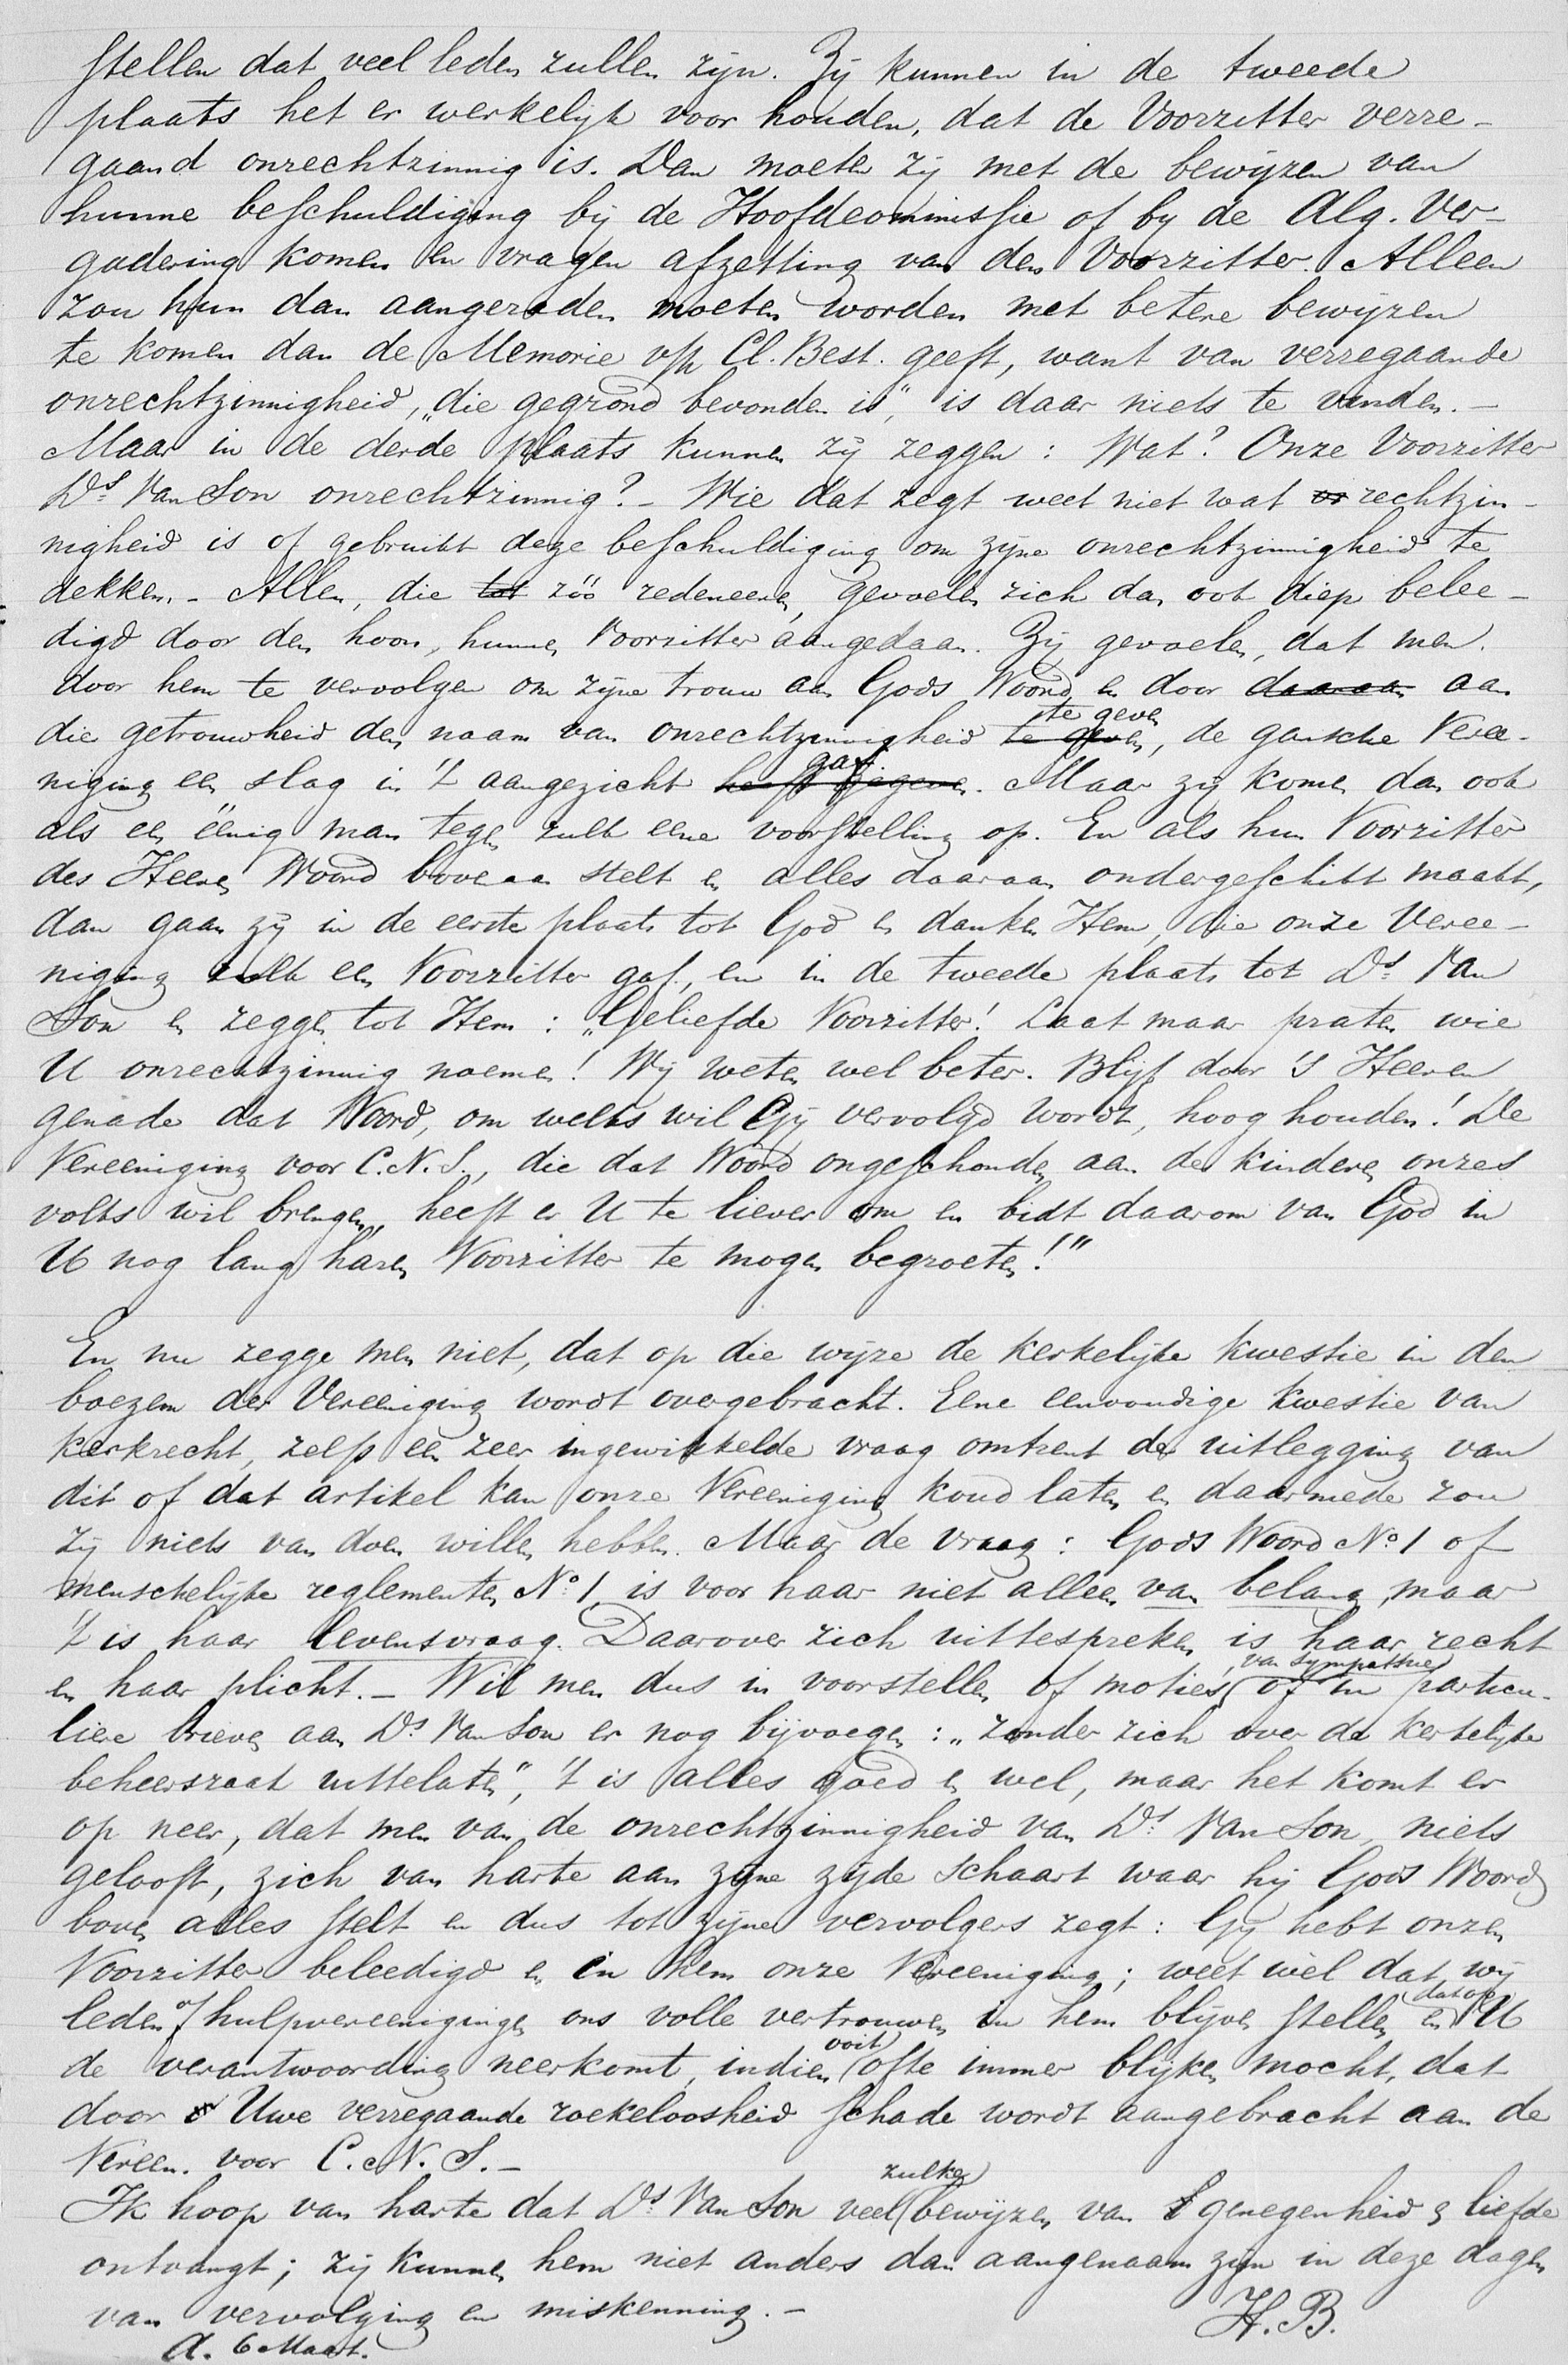 stellen dat veel leden zullen zijn. Zij kunnen in de tweede
plaats het er werkelijk voor houden, dat de Voorzitter verre-
gaand onrechtzinnig is. Dan moeten zij met de bewijzen van
hunne beschuldiging bij de Hoofdcommissie of by de Alg. Ver-
gadering komen en vragen afzetting van den Voorzitter. Alleen
zou hun dan aangeraden moeten worden met betere bewijzen
te komen dan de Memorie v/h Cl. Best. geeft, want van verregaande
onrechtzinnigheid, "die gegrond bevonden is", is daar niets te vinden. -
Maar in de derde plaats kunnen zij zeggen: Wat? Onze Voorzitter
Ds Van Son onrechtzinnig? - Wie dat zegt weet niet wat or rechtzin-
nigheid is of gebruikt deze beschuldiging om zijne onrechtzinnigheid te
dekken. - Allen, die tot zóó redeneeren, gevoelen zich dan ook diep belee-
digd door den hoon, hunnen Voorzitter aangedaan. Zij gevoelen, dat men
door hem te vervolgen om zijne trouw aan Gods Woord en door daaraan aan
die getrouwheid den naam van onrechtzinnigheid te geven te geven, de gansche Veree-
niging een slag in 't aangezicht heeft gegeven gaf. Maar zij komen dan ook
als een éénig man tegen zulk eene voorstelling op. En als hun Voorzitter
des Heeren Woord bovenaan stelt en alles daaraan ondergeschikt maakt,
dan gaan zij in de eerste plaats tot God en danken Hem, die onze Veree-
niging zulk een Voorzitter gaf, en in de tweede plaats tot Ds Van
Son en zeggen tot Hem: "Geliefde Voorzitter! Laat maar praten wie
U onrechtzinnig noemen! Wij weten wel beter. Blijf door 's Heeren
genade dat Woord, om welks wil Gij vervolgd wordt, hoog houden! De
Vereeniging voor C.N.S., die dat Woord ongeschonden aan de kinderen onzes
volks wil brengen, heeft er U te liever om en bidt daarom van God in
U nog lang haren Voorzitter te mogen begroeten!"
En nu zegge men niet, dat op die wijze de kerkelijke kwestie in den
boezem der Vereeniging wordt overgebracht. Eene eenvoudige kwestie van
kerkrecht, zelfs een zeer ingewikkelde vraag omtrent de uitlegging van
dit of dat artikel kan onze Vereeniging koud laten en daarmede zou
zij niets van doen willen hebben. Maar de vraag: Gods Woord No 1 of
menschelijke reglementen No 1 is voor haar niet alleen van belang, maar
't is haar levensvraag. Daarover zich uittespreken is haar recht
en haar plicht. - Wil men dus in voorstellen of moties van sympathie of in particu-
liere brieven aan Ds Van Son er nog bijvoegen: "zonder zich over de kerkelijke
beheersraat uittelaten", 't is alles goed en wel, maar het komt er
op neer, dat men van de onrechtzinnigheid van Ds Van Son niets
gelooft, zich van harte aan zijne zijde schaart waar hij Gods Woord
boven alles stelt en dus tot zijne vervolgers zegt: Gij hebt onzen
Voorzitter beleedigd en in hem onze Vereeniging; weet wèl dat wij
leden of hulpvereenigingen ons volle vertrouwen in hem blijven stellen en dat op U
de verantwoording neerkomt, indien ooit ofte immer blijken mocht, dat
door Uwe verregaande roekeloosheid schade wordt aangebracht aan de
Vereen. voor C.N.S. -
Ik hoop van harte dat Ds Van Son veel zulke bewijzen van genegenheid & liefde
ontvangt; zij kunnen hem niet anders dan aangenaam zijn in deze dagen
van vervolging en miskenning. -
H. B.
A. 6 Maart.